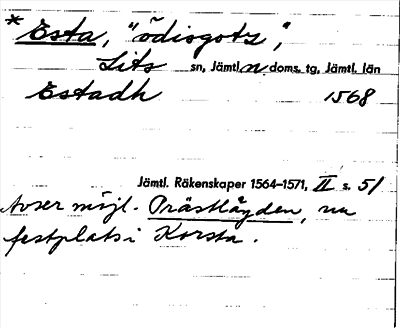 * Esta, "ödisgotz",
Lits sn, Jämtl. n. doms. tg, Jämtl. län
Estadh 1568
Jämtl. Räkenskaper 1564–1571, II s. 51
Avser möjl. Prästlägden, nu
festplats i Korsta.